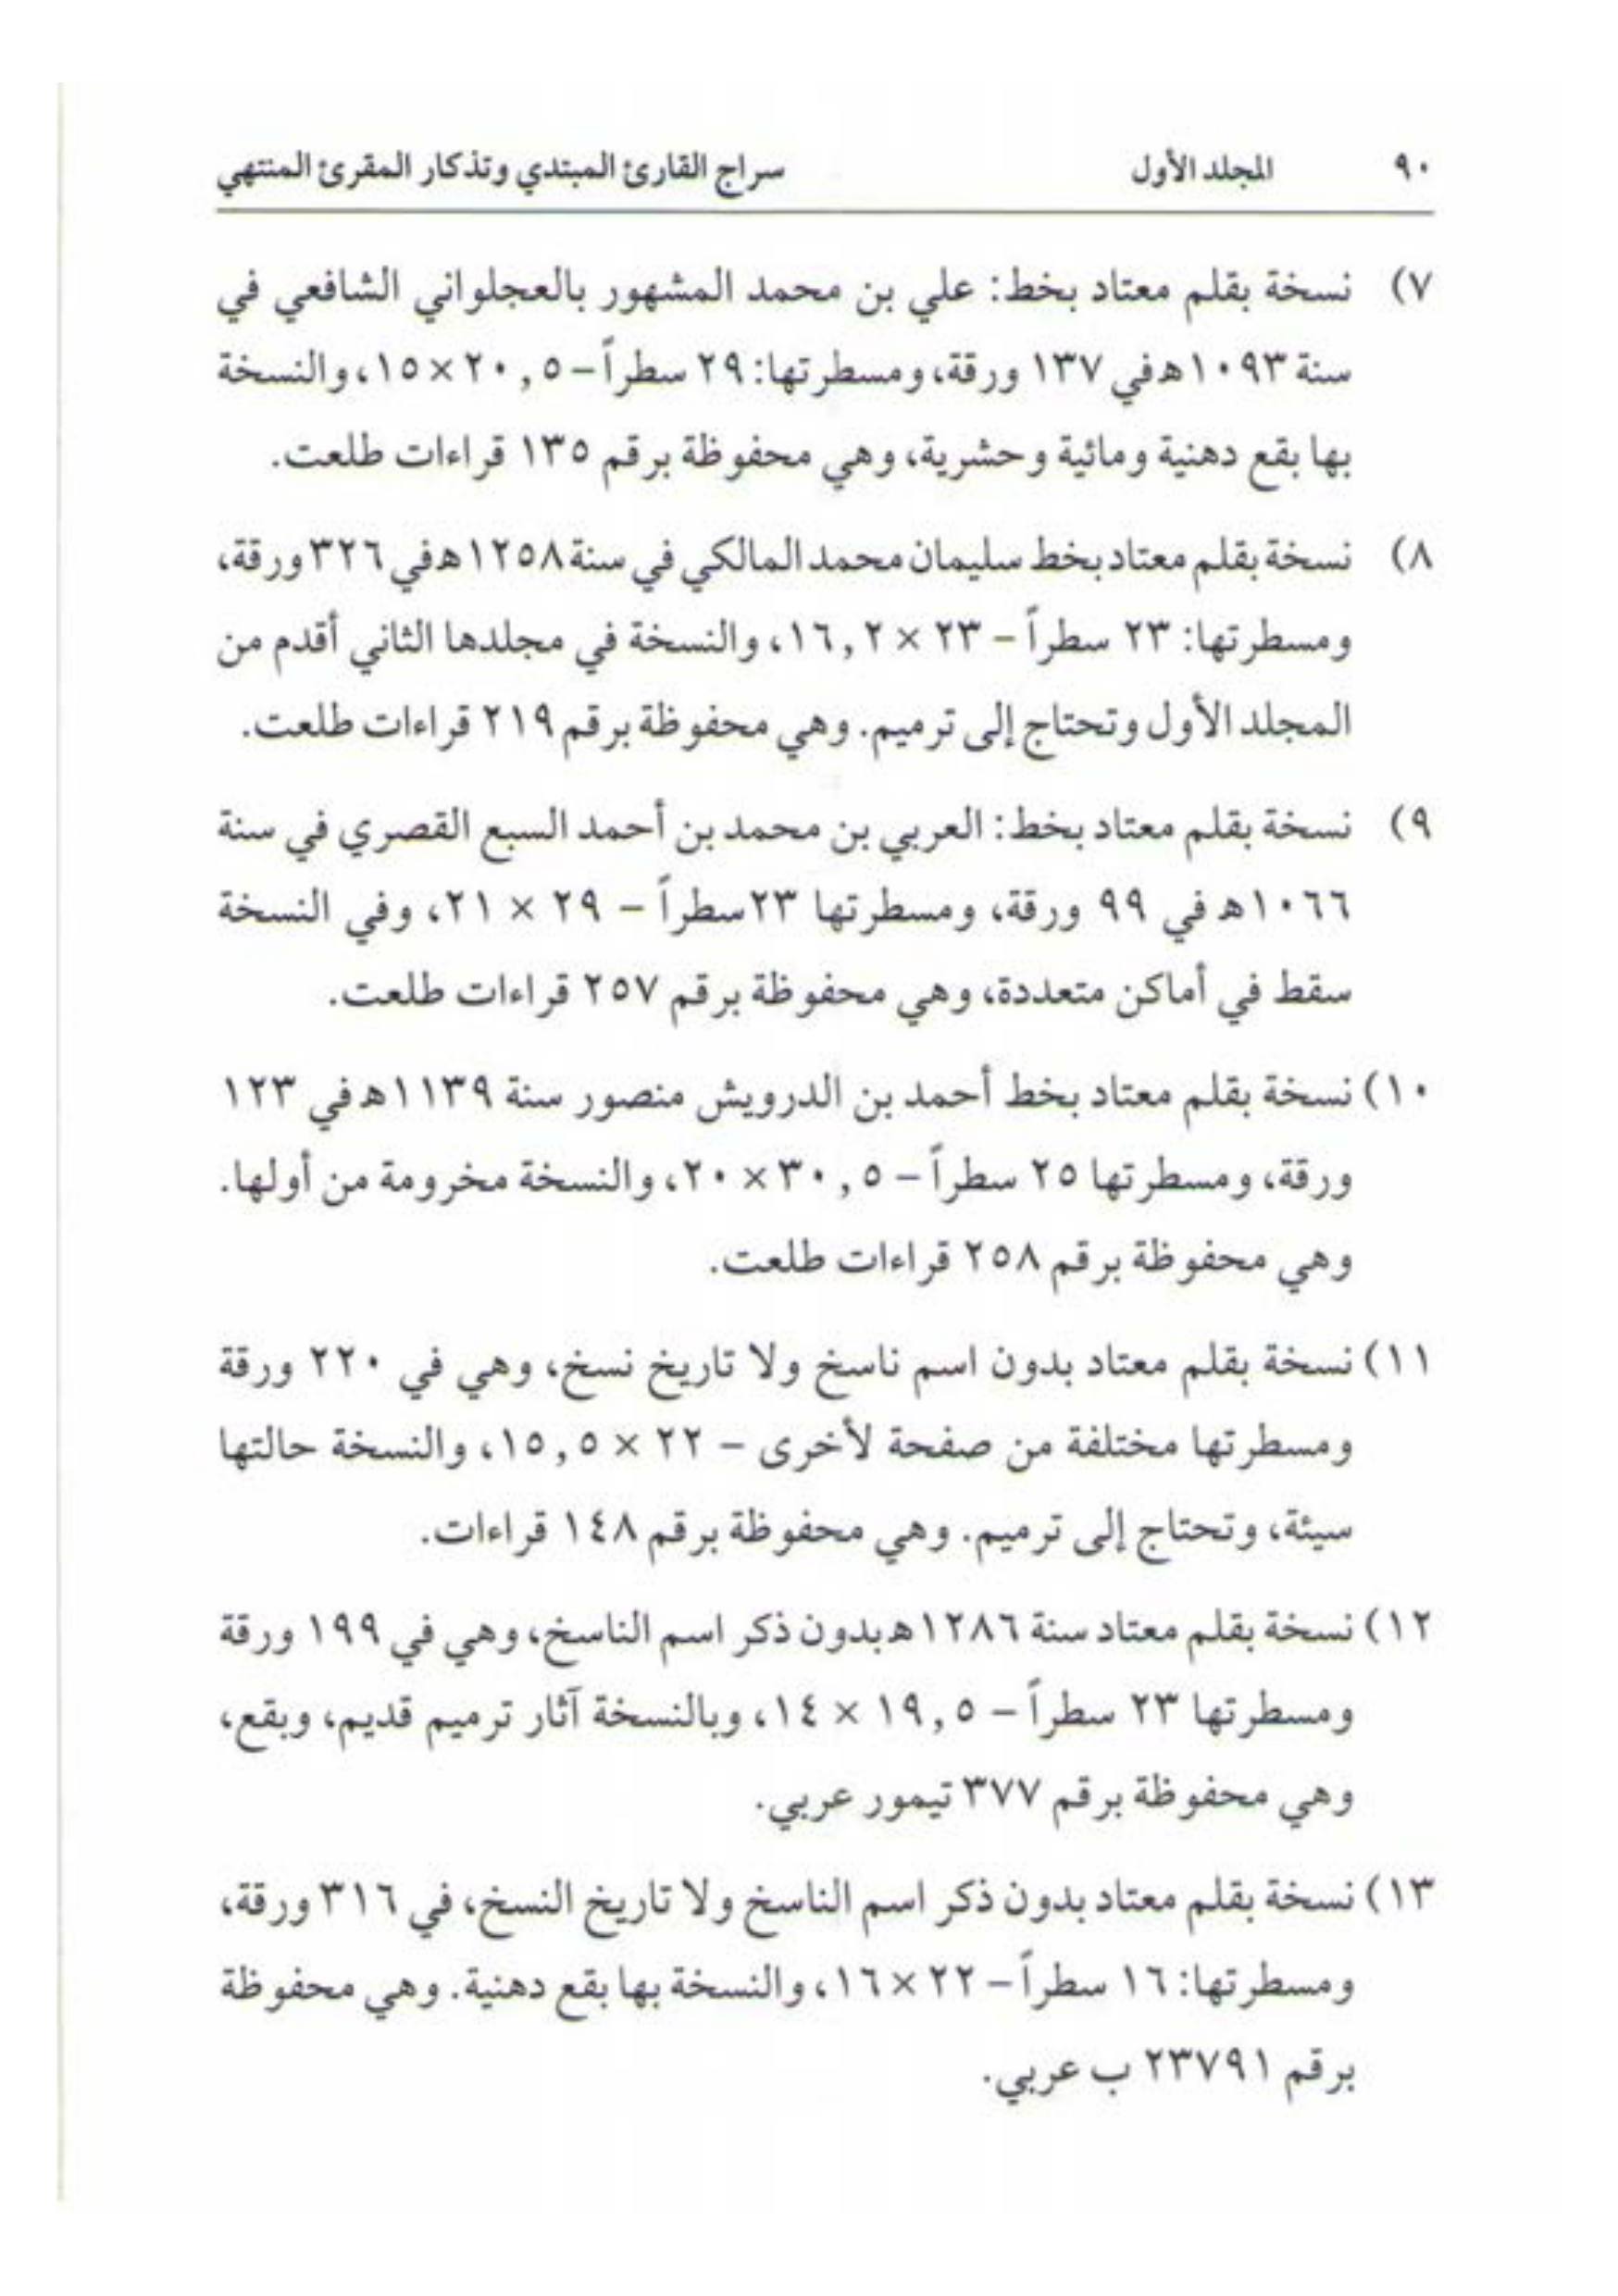 ٩٠ المجلد الأول سراج القارئ المبتدي وتذكار المقرئ المنتهي
٧) نسخة بقلم معتاد بخط: علي بن محمد المشهور بالعجلواني الشافعي في
سنة ١٠٩٣هـ في ١٣٧ ورقة، ومسطرتها: ٢٩ سطراً – ٢٠,٥ × ١٥، والنسخة
بها بقع دهنية ومائية وحشرية، وهي محفوظة برقم ١٣٥ قراءات طلعت.
٨) نسخة بقلم معتاد بخط سليمان محمد المالكي في سنة ١٢٥٨هـ في ٣٢٦ ورقة،
ومسطرتها: ٢٣ سطراً – ٢٣ × ١٦,٢، والنسخة في مجلدها الثاني أقدم من
المجلد الأول وتحتاج إلى ترميم. وهي محفوظة برقم ٢١٩ قراءات طلعت.
٩) نسخة بقلم معتاد بخط: العربي بن محمد بن أحمد السبع القصري في سنة
١٠٦٦هـ في ٩٩ ورقة، ومسطرتها ٢٣سطراً – ٢٩ × ٢١، وفي النسخة
سقط في أماكن متعددة، وهي محفوظة برقم ٢٥٧ قراءات طلعت.
١٠) نسخة بقلم معتاد بخط أحمد بن الدرويش منصور سنة ١١٣٩هـ في ١٢٣
ورقة، ومسطرتها ٢٥ سطراً – ٣٠,٥ × ٢٠، والنسخة مخرومة من أولها.
وهي محفوظة برقم ٢٥٨ قراءات طلعت.
١١) نسخة بقلم معتاد بدون اسم ناسخ ولا تاريخ نسخ، وهي في ٢٢٠ ورقة
ومسطرتها مختلفة من صفحة لأخرى – ٢٢ × ١٥,٥، والنسخة حالتها
سيئة، وتحتاج إلى ترميم. وهي محفوظة برقم ١٤٨ قراءات.
١٢) نسخة بقلم معتاد سنة ١٢٨٦هـ بدون ذكر اسم الناسخ، وهي في ١٩٩ ورقة
ومسطرتها ٢٣ سطراً – ١٩,٥ × ١٤، وبالنسخة آثار ترميم قديم، وبقع،
وهي محفوظة برقم ٣٧٧ تيمور عربي.
١٣) نسخة بقلم معتاد بدون ذكر اسم الناسخ ولا تاريخ النسخ، في ٣١٦ ورقة،
ومسطرتها: ١٦ سطراً – ٢٢ × ١٦، والنسخة بها بقع دهنية. وهي محفوظة
برقم ٢٣٧٩١ ب عربي.